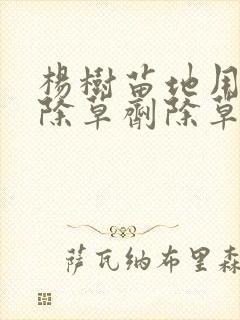 楊樹苗地用
除草劑除草
萨瓦纳布里森